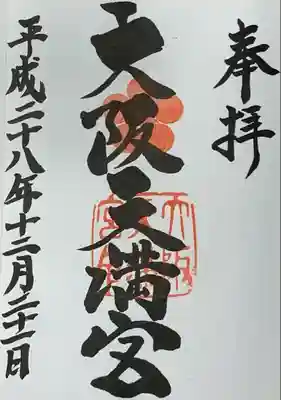 奉拝
大阪天満宮
平成二十八年十二月二十二日